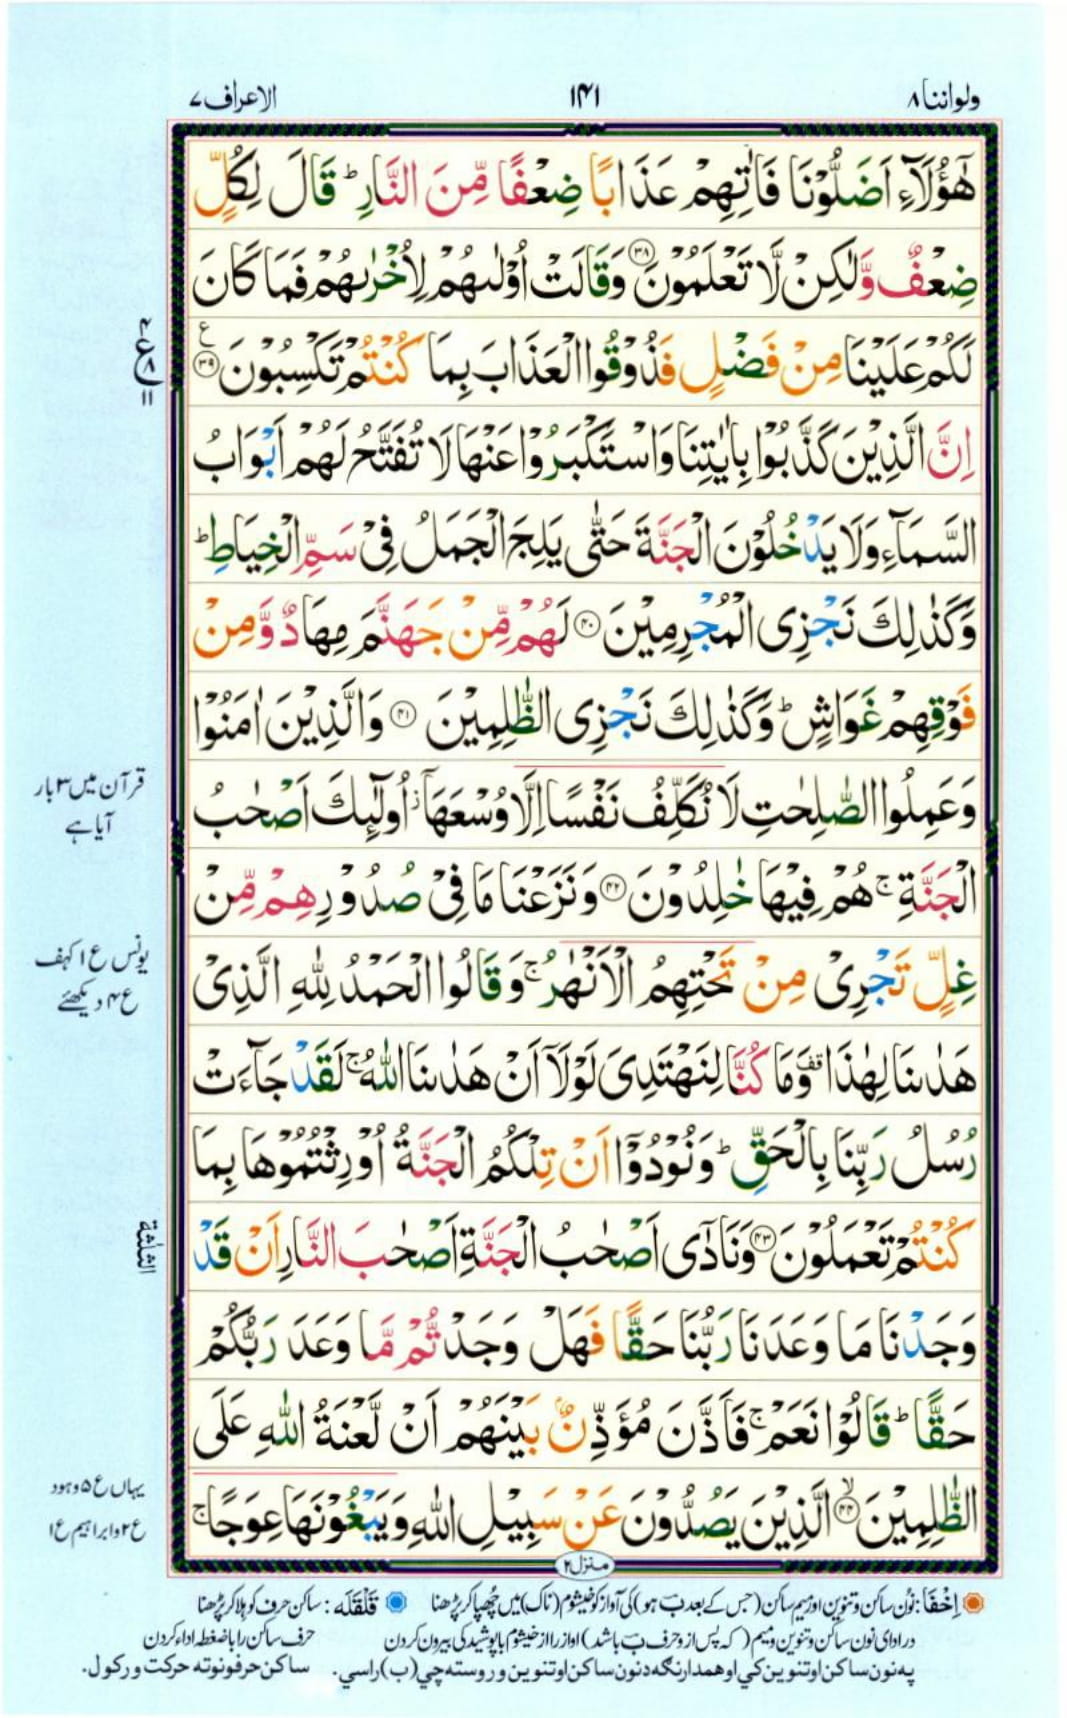 ولواننا ۸ ۱۴۱ الاعراف ۷
هٰۤؤُلَآءِ اَضَلُّوْنَا فَاٰتِهِمْ عَذَابًا ضِعْفًا مِّنَ النَّارِ ؕ قَالَ لِكُلٍّ
ضِعْفٌ وَّلٰكِنْ لَّا تَعْلَمُوْنَ ۝۳۸ وَقَالَتْ اُوْلٰىهُمْ لِاُخْرٰىهُمْ فَمَا كَانَ
لَكُمْ عَلَيْنَا مِنْ فَضْلٍ فَذُوْقُوا الْعَذَابَ بِمَا كُنْتُمْ تَكْسِبُوْنَ ۝۳۹ ع
۴ ع ۸ ۱۱
اِنَّ الَّذِيْنَ كَذَّبُوْا بِاٰيٰتِنَا وَاسْتَكْبَرُوْا عَنْهَا لَا تُفَتَّحُ لَهُمْ اَبْوَابُ
السَّمَآءِ وَلَا يَدْخُلُوْنَ الْجَنَّةَ حَتّٰى يَلِجَ الْجَمَلُ فِيْ سَمِّ الْخِيَاطِ ؕ
وَكَذٰلِكَ نَجْزِى الْمُجْرِمِيْنَ ۝۴۰ لَهُمْ مِّنْ جَهَنَّمَ مِهَادٌ وَّمِنْ
فَوْقِهِمْ غَوَاشٍ ؕ وَكَذٰلِكَ نَجْزِى الظّٰلِمِيْنَ ۝۴۱ وَالَّذِيْنَ اٰمَنُوْا
وَعَمِلُوا الصّٰلِحٰتِ لَا نُكَلِّفُ نَفْسًا اِلَّا وُسْعَهَاۤ ز اُولٰٓئِكَ اَصْحٰبُ
قرآن میں ۳ بار
آیا ہے
الْجَنَّةِ ۚ هُمْ فِيْهَا خٰلِدُوْنَ ۝۴۲ وَنَزَعْنَا مَا فِيْ صُدُوْرِهِمْ مِّنْ
غِلٍّ تَجْرِيْ مِنْ تَحْتِهِمُ الْاَنْهٰرُ ۚ وَقَالُوا الْحَمْدُ لِلّٰهِ الَّذِيْ
یونس ع ۱ کہف
ع ۴ دیکھئے
هَدٰىنَا لِهٰذَا قف وَمَا كُنَّا لِنَهْتَدِيَ لَوْلَاۤ اَنْ هَدٰىنَا اللّٰهُ ۚ لَقَدْ جَآءَتْ
رُسُلُ رَبِّنَا بِالْحَقِّ ؕ وَنُوْدُوْۤا اَنْ تِلْكُمُ الْجَنَّةُ اُوْرِثْتُمُوْهَا بِمَا
كُنْتُمْ تَعْمَلُوْنَ ۝۴۳ وَنَادٰۤى اَصْحٰبُ الْجَنَّةِ اَصْحٰبَ النَّارِ اَنْ قَدْ
الثلثة
وَجَدْنَا مَا وَعَدَنَا رَبُّنَا حَقًّا فَهَلْ وَجَدْتُّمْ مَّا وَعَدَ رَبُّكُمْ
حَقًّا ؕ قَالُوْا نَعَمْ ۚ فَاَذَّنَ مُؤَذِّنٌۢ بَيْنَهُمْ اَنْ لَّعْنَةُ اللّٰهِ عَلَى
الظّٰلِمِيْنَ ۝۴۴ۙ الَّذِيْنَ يَصُدُّوْنَ عَنْ سَبِيْلِ اللّٰهِ وَيَبْغُوْنَهَا عِوَجًا ۚ
یہاں ع ۵ و ہود
ع ۲ و ابراہیم ع ۱
منزل ۲
اِخْفَا: نُون ساکن و تنوین اور میم ساکن (جس کے بعد ب ہو) کی آواز کو خیشوم (ناک) میں چُھپا کر پڑھنا قَلْقَلَه: ساکن حرف کو ہلا کر پڑھنا
در ادای نون ساکن و تنوین و میم (که پس از و حرف ب باشد) اواز را از خیشوم با پوشیدگی بیرون کردن حرف ساکن را با ضغطه اداء کردن
په نون ساکن او تنوین کي او همدارنګه د نون ساکن او تنوین ور وروسته چي (ب) راسي. ساکن حرفونو ته حرکت ورکول.